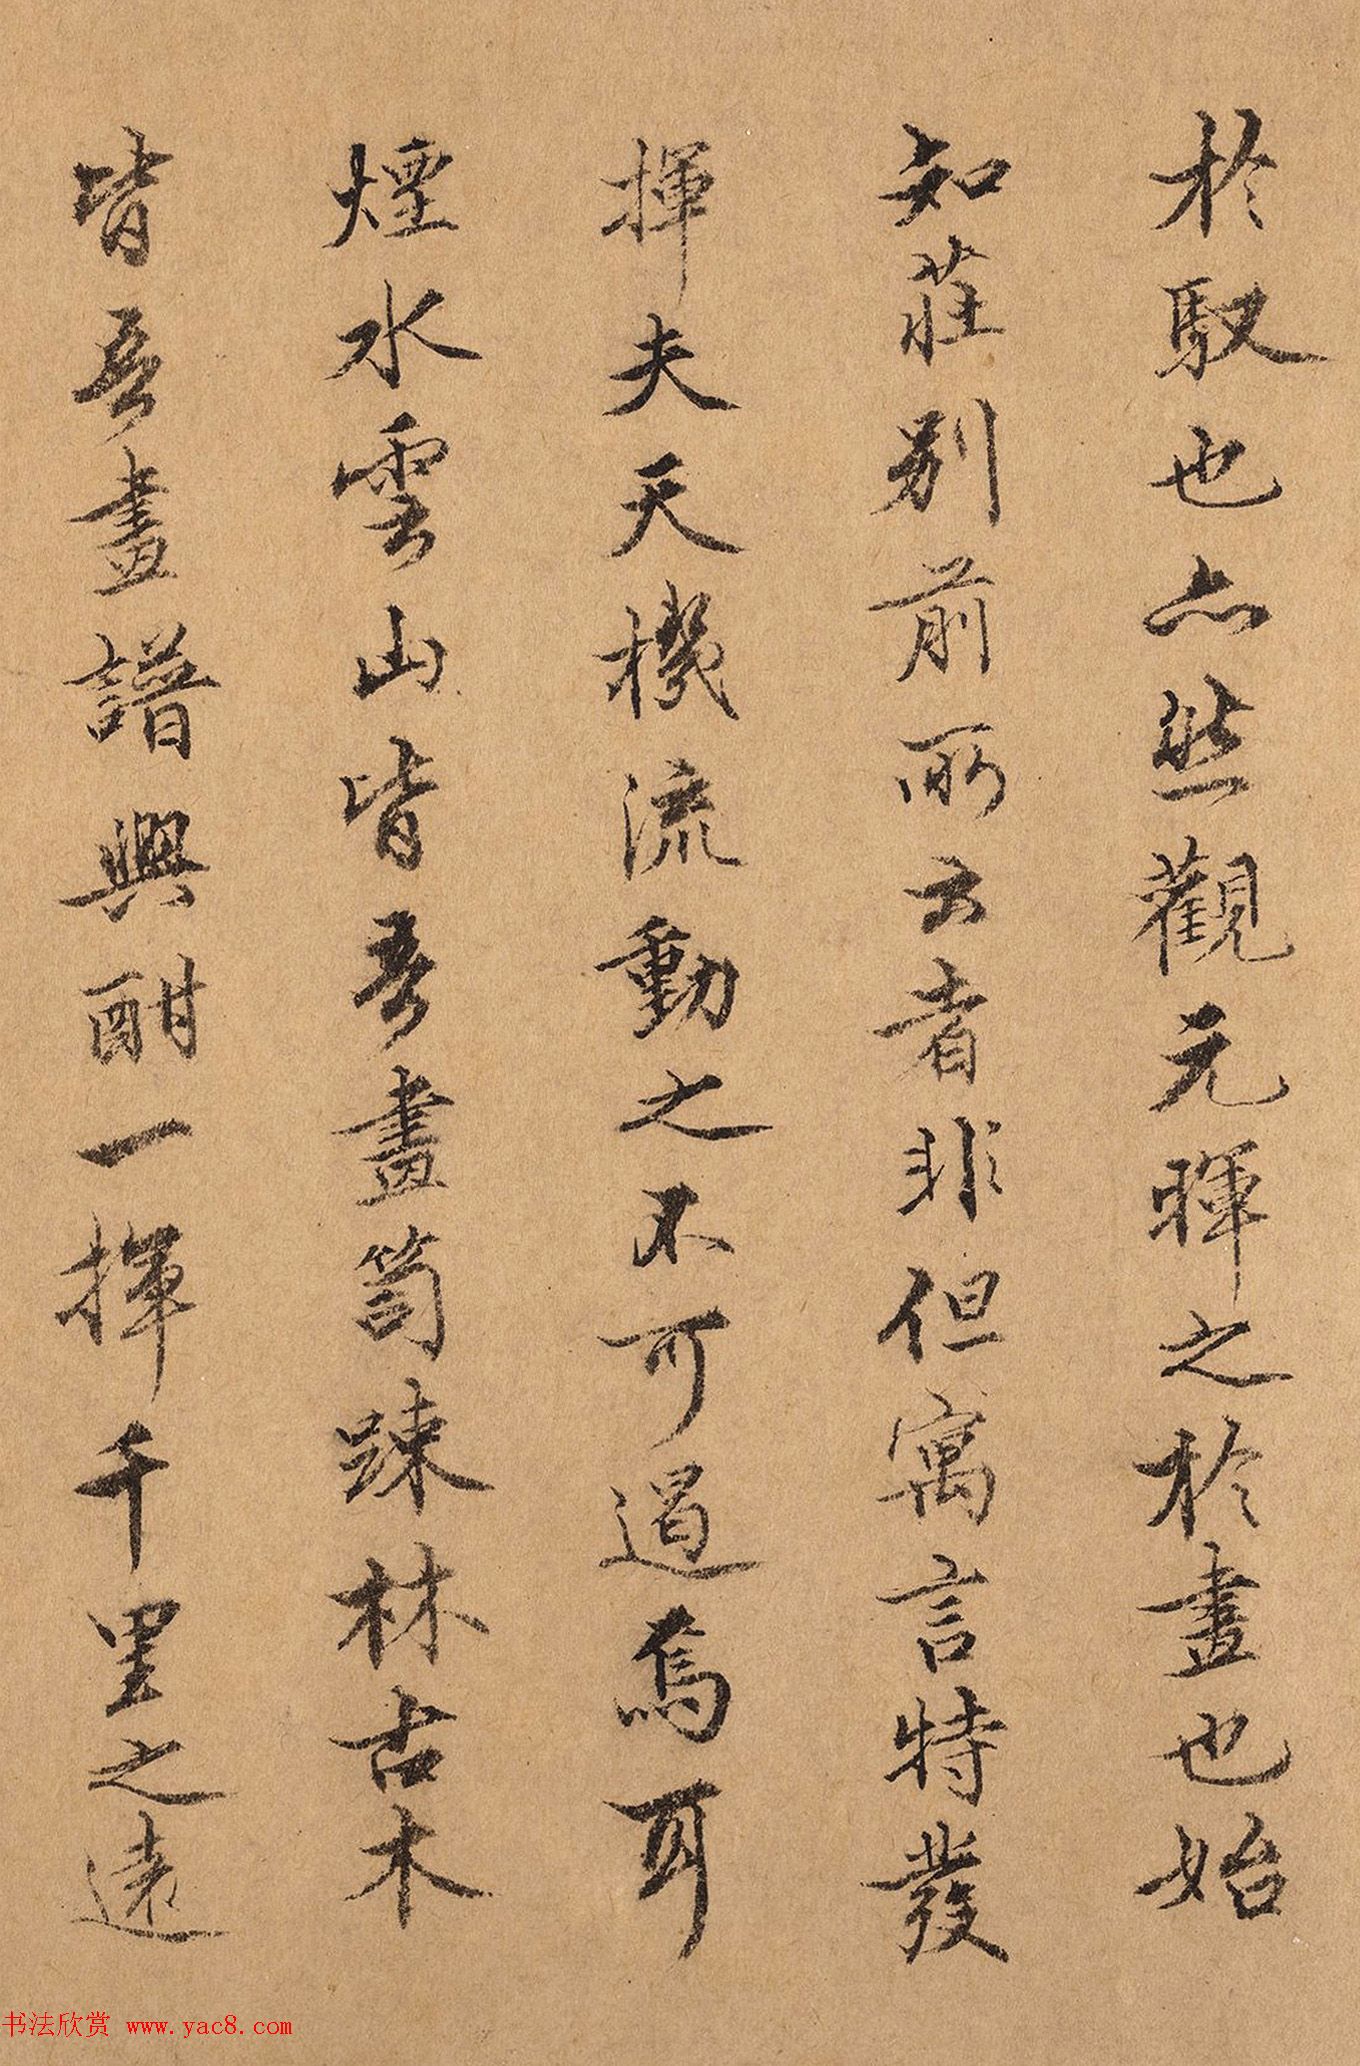 於馭也亦然觀元暉之於畫也始
知莊別前所云者非但寓言特發
揮夫天機流動之不可遏焉耳
煙水雲山皆吾畫笥踈林古木
皆吾畫譜興酣一揮千里之遠
书法欣赏 www.yac8.com